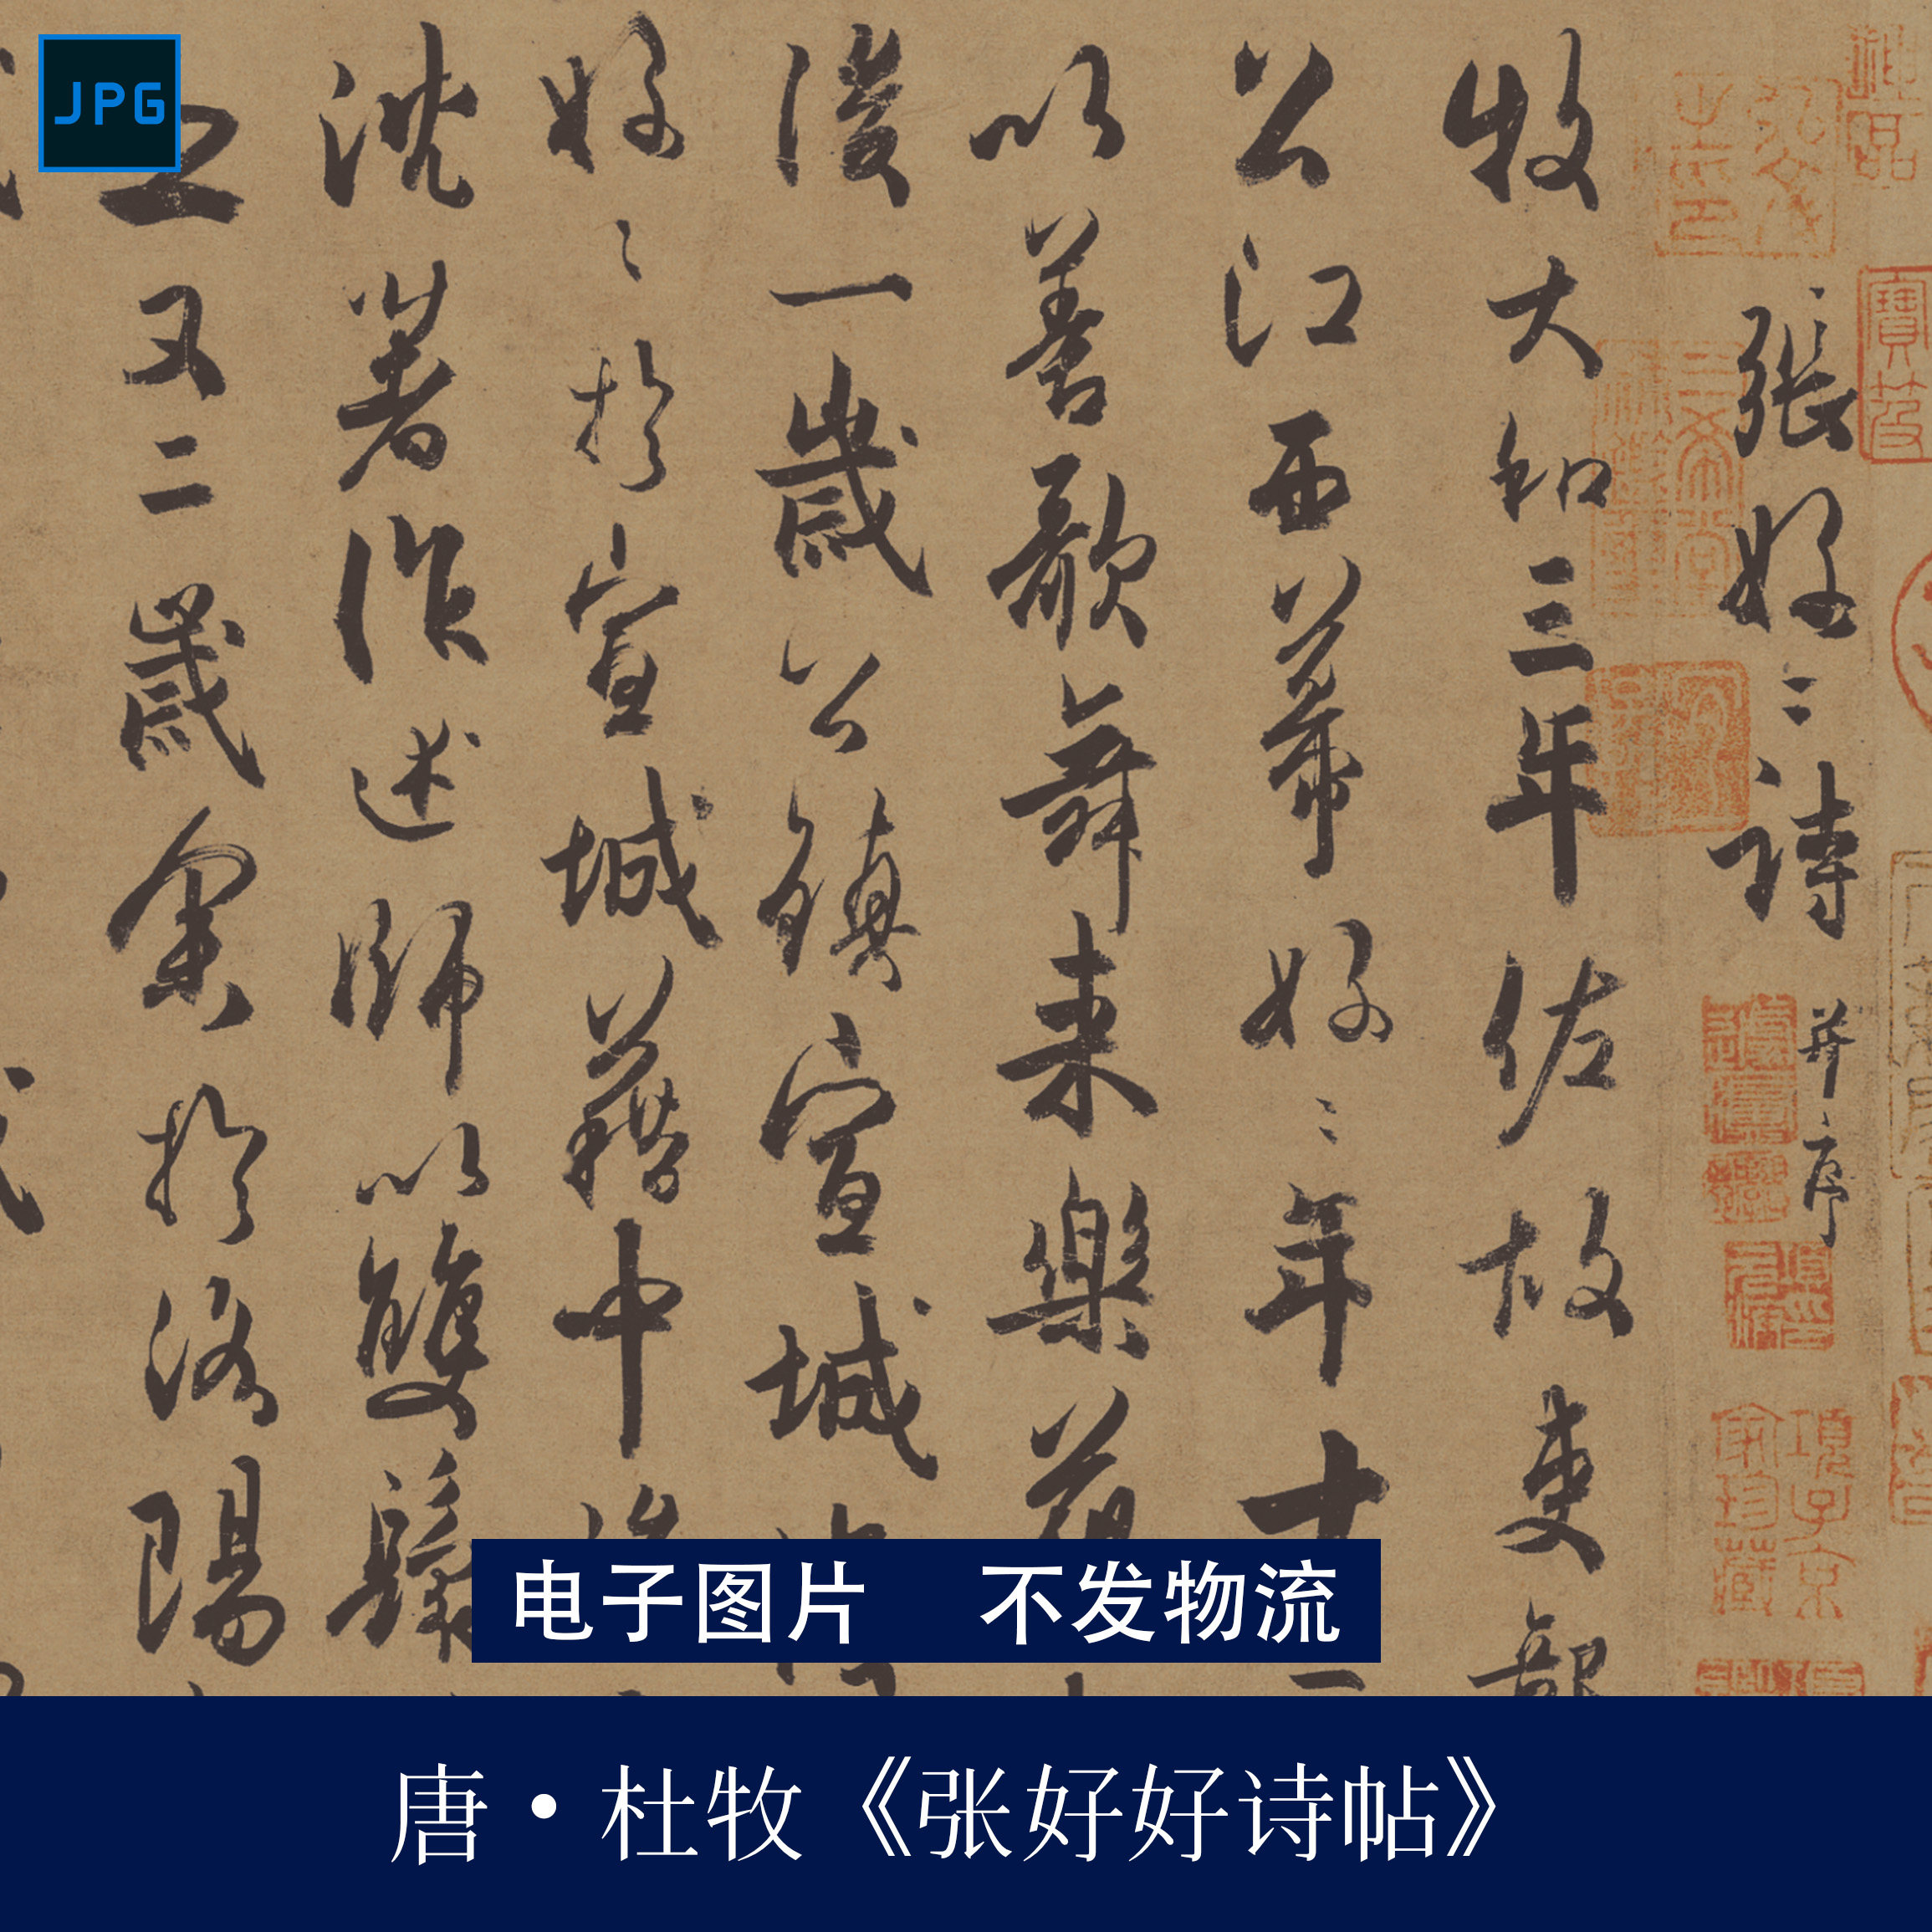 JPG
張好〻詩 并序
牧大和三年佐故吏部
公江西幕好〻年十
以善歌舞来樂
後一歲公鎮宣城
好〻於宣城藉中
沈著作述師以雙鬟
之又二歲余於洛陽
寶笈
三希堂精鑑璽
宜子孫
項子京家珍藏
电子图片 不发物流
唐·杜牧《张好好诗帖》